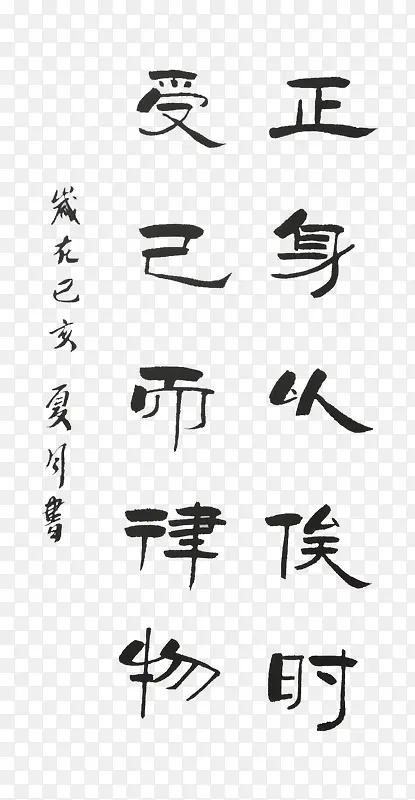 正身以俟时
受己而律物
歲在己亥夏月書